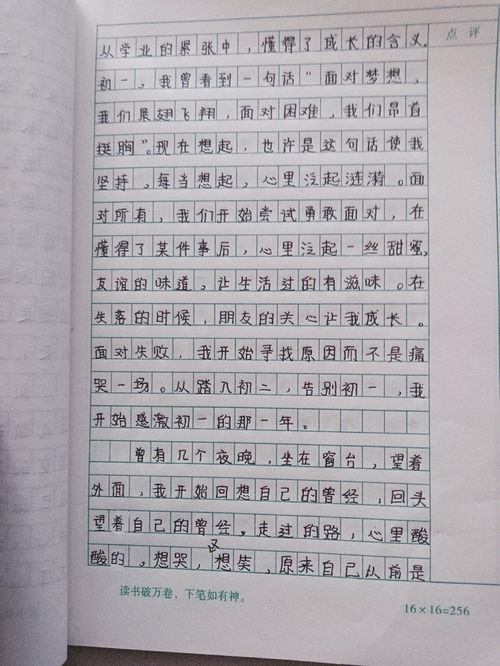 点评
从学业的紧张中，懂得了成长的含义。
初一。我曾看到一句话“面对梦想，
我们展翅飞翔，面对困难，我们昂首
挺胸”。现在想起，也许是这句话使我
坚持，每当想起，心里泛起涟漪。面
对所有，我们开始尝试勇敢面对，在
懂得了某件事后，心里泛起一丝甜蜜，
友谊的味道。让生活过的有滋味。在
失落的时候，朋友的关心让我成长。
面对失败，我开始寻找原因而不是痛
哭一场。从踏入初二，告别初一，我
开始感激初一的那一年。
曾有几个夜晚，坐在窗台，望着
外面，我开始回想自己的曾经，回头
望着自己的曾经。走过的路，心里酸
酸的。想哭，又想笑，原来自己从前是
读书破万卷，下笔如有神。
16×16=256